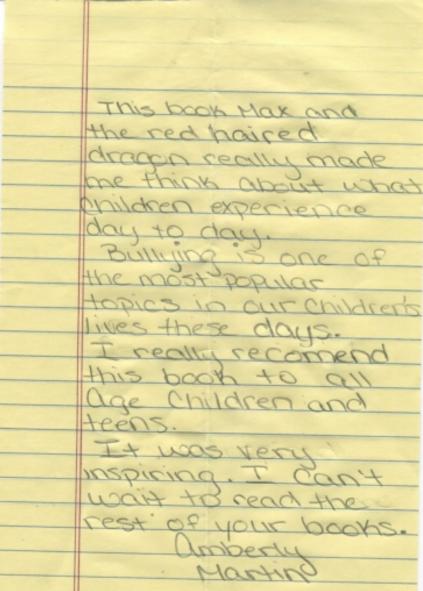 This book Max and
the red haired
dragon really made
me think about what
children experience
day to day.
Bullying is one of
the most popular
topics in our Children's
lives these days.
I really recomend
this book to all
age Children and
teens.
It was very
inspiring. I can't
wait to read the
rest of your books.
Amberly
Martin